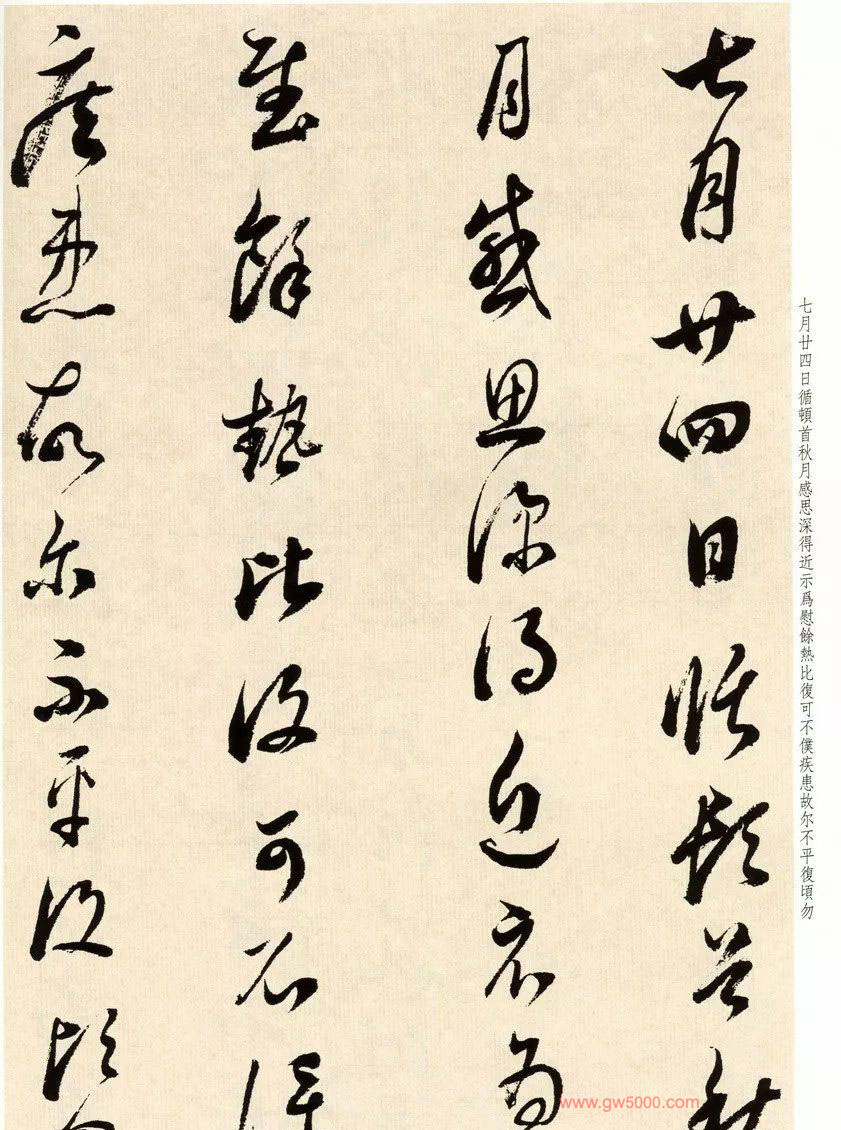 七月廿四日循頓首秋
月感思深得近示爲
慰餘熱比復可不僕
疾患故尔不平復頃
七月廿四日循頓首秋月感思深得近示爲慰餘熱比復可不僕疾患故尔不平復頃勿
www.gw5000.com